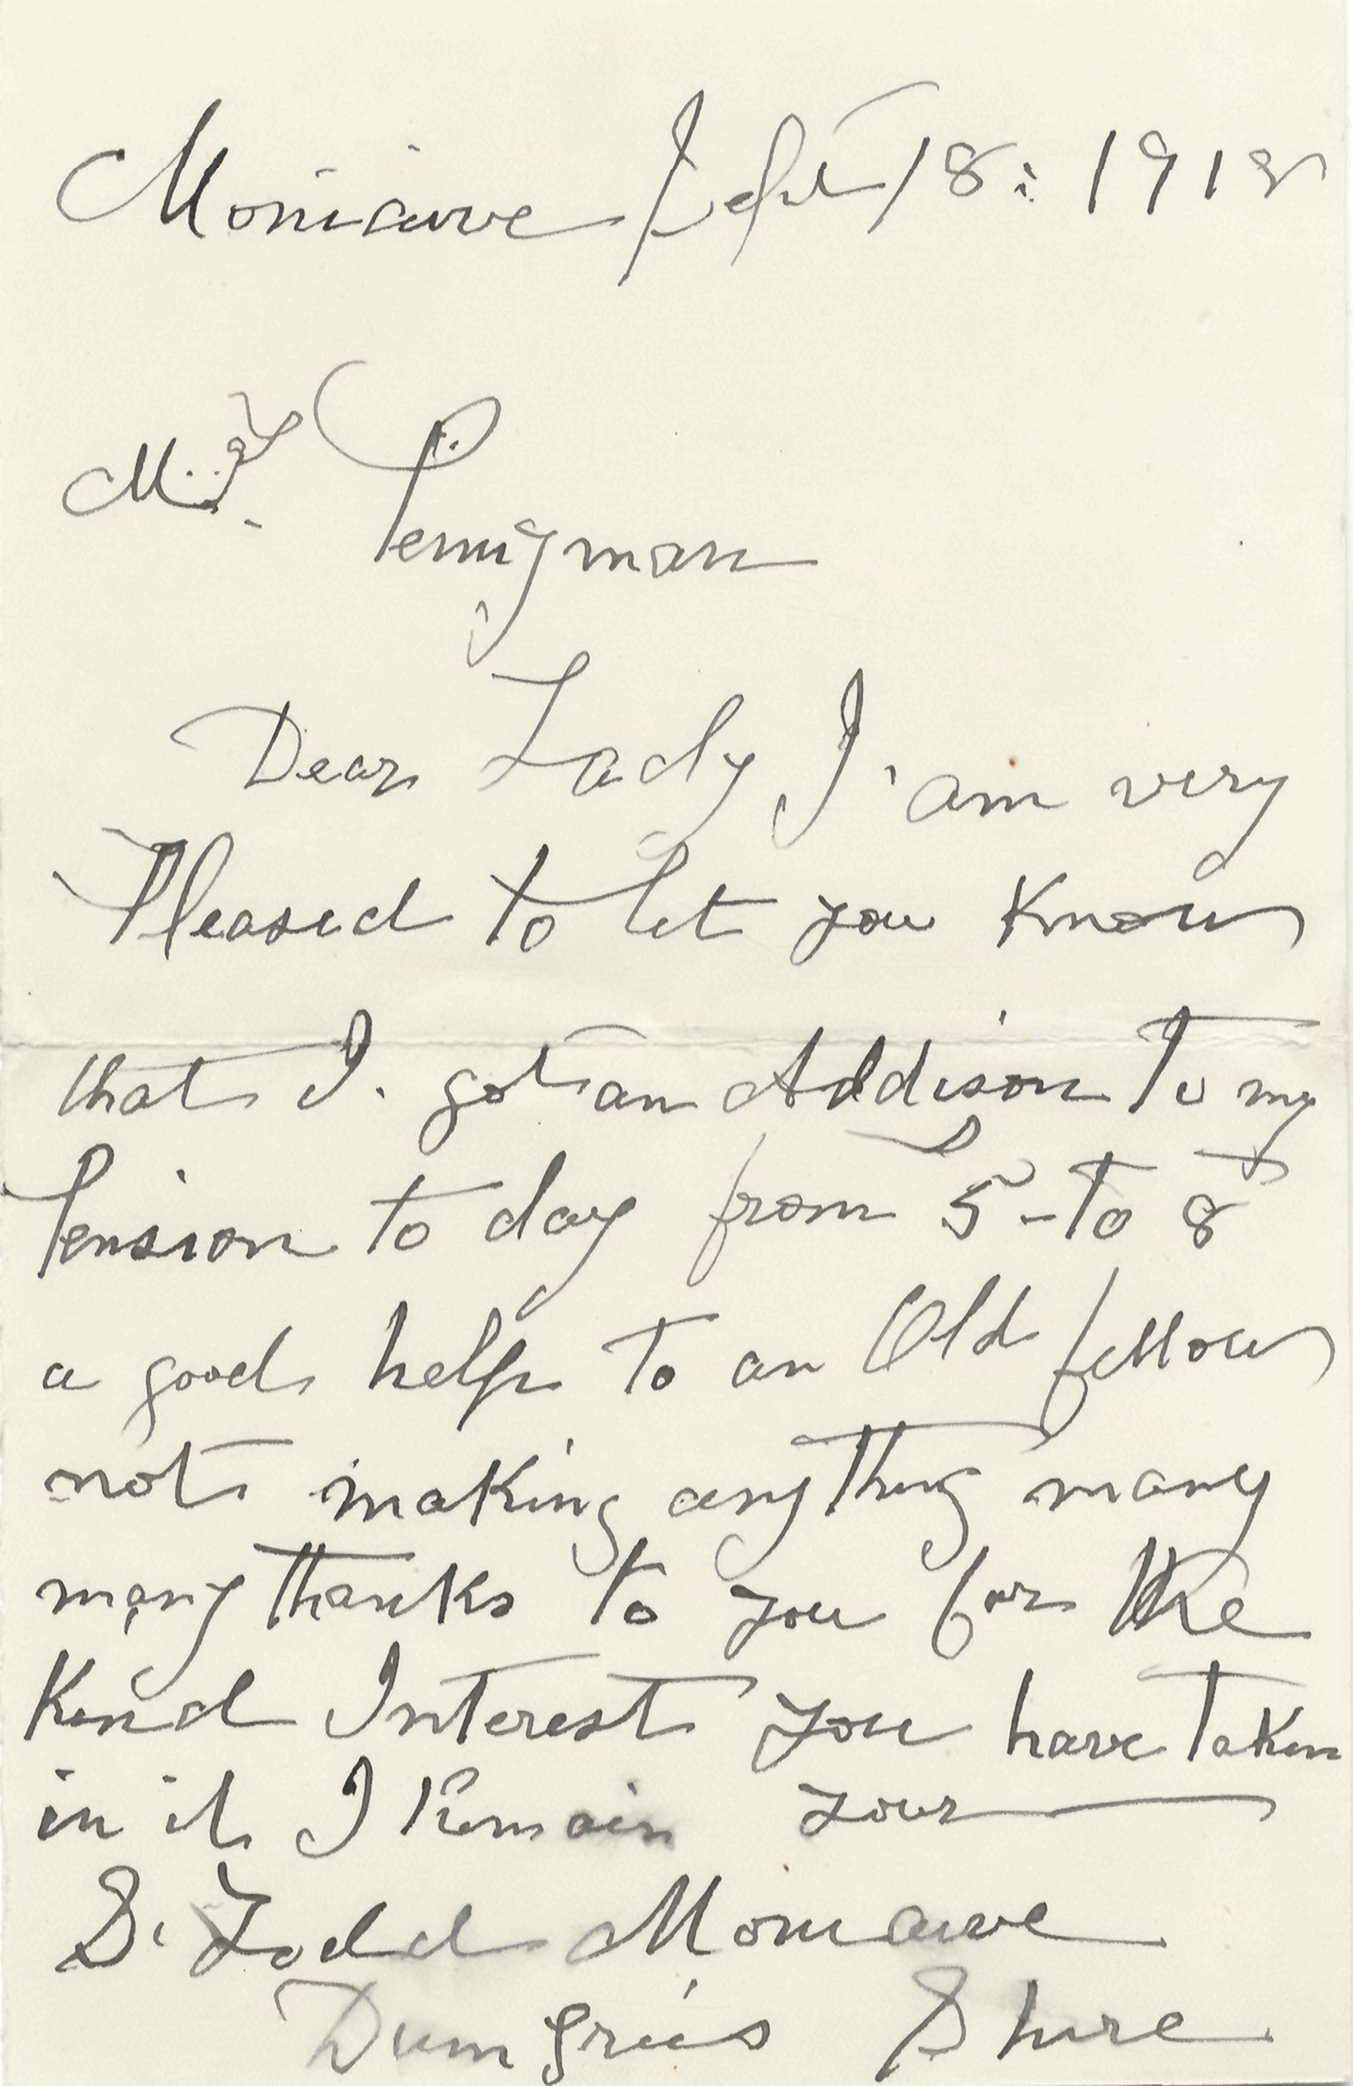 Moniaive Sept 18: 1918
Mrs Pennyman
Dear Lady I am very
Pleased to let you Know
that I. got an Addison To my
Pension to day from 5 - to 8
a good help To an Old fellow
not making any thing many
many thanks to you for the
Kind Interest you have Taken
in it I Remain your
S. Todd Moniaive
Dumfries Shire